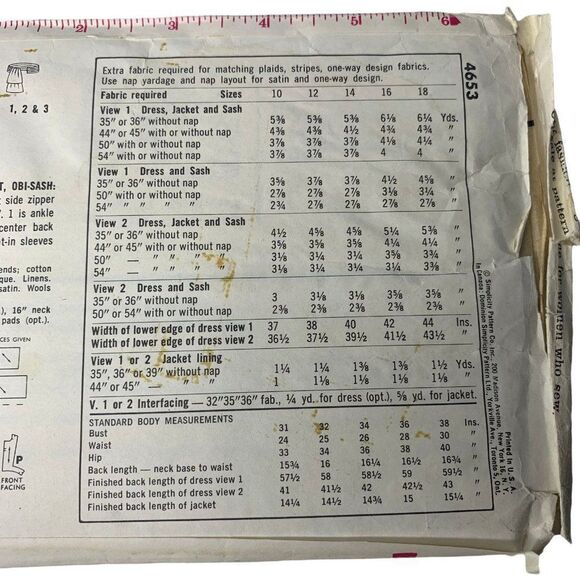 2 3 4 5 6
4653
1, 2 & 3
Extra fabric required for matching plaids, stripes, one-way design fabrics.
Use nap yardage and nap layout for satin and one-way design.
Fabric required Sizes 10 12 14 16 18
View 1 Dress, Jacket and Sash
35" or 36" without nap 5⅜ 5⅜ 5⅜ 6⅛ 6¼ Yds.
44" or 45" with or without nap 4⅜ 4⅜ 4½ 4¾ 4¾ "
50" with or without nap 3⅞ 3⅞ 3⅞ 4⅛ 4⅛ "
54" with or without nap 3⅞ 3⅞ 3⅞ 4 4 "
View 1 Dress and Sash
35" or 36" without nap 3⅝ 3⅞ 3⅞ 4½ 4⅝ "
50" with or without nap 2⅞ 2⅞ 2⅞ 3⅛ 3¼ "
54" " " " 2¾ 2⅞ 2⅞ 2⅞ 2⅞ "
View 2 Dress, Jacket and Sash
35" or 36" without nap 4½ 4⅝ 4⅝ 5¼ 5⅜ "
44" or 45" with or without nap 3⅝ 3⅝ 3⅝ 4¼ 4¼ "
50" — " " " " 3⅛ 3¼ 3¼ 3⅝ 3⅝ "
54" — " " " " 3⅛ 3¼ 3¼ 3¼ 3⅜ "
View 2 Dress and Sash
35" or 36" without nap 3 3⅛ 3⅛ 3⅝ 3⅝ "
50" or 54" with or without nap 2⅜ 2⅜ 2⅜ 2⅝ 2⅝ "
Width of lower edge of dress view 1 37 38 40 42 44 Ins.
Width of lower edge of dress view 2 36½ 37½ 39½ 41½ 43½ "
View 1 or 2 Jacket lining
35", 36" or 39" without nap 1¼ 1¼ 1⅜ 1⅜ 1½ Yds.
44" or 45" — " " 1 1⅛ 1⅛ 1⅛ 1⅛ "
V. 1 or 2 Interfacing — 32"35"36" fab., ¼ yd. for dress (opt.), ⅝ yd. for jacket.
STANDARD BODY MEASUREMENTS
Bust 31 32 34 36 38 Ins.
Waist 24 25 26 28 30 "
Hip 33 34 36 38 40 "
Back length — neck base to waist 15¾ 16 16¼ 16½ 16¾ "
Finished back length of dress view 1 57½ 58 58½ 59 59½ "
Finished back length of dress view 2 41 41½ 42 42½ 43 "
Finished back length of jacket 14¼ 14½ 14¾ 15 15¼ "
T, OBI-SASH:
side zipper
. 1 is ankle
center back
t-in sleeves
ends; cotton
que. Linens.
satin. Wools
), 16" neck
pads (opt.).
CES GIVEN
P
FRONT
FACING
© Simplicity Pattern Co. Inc., 200 Madison Avenue, New York 16, N. Y.
In Canada: Dominion Simplicity Pattern Ltd., Yorkville Ave., Toronto 5, Ont.
Printed in U. S. A.
pattern
for women who sew.